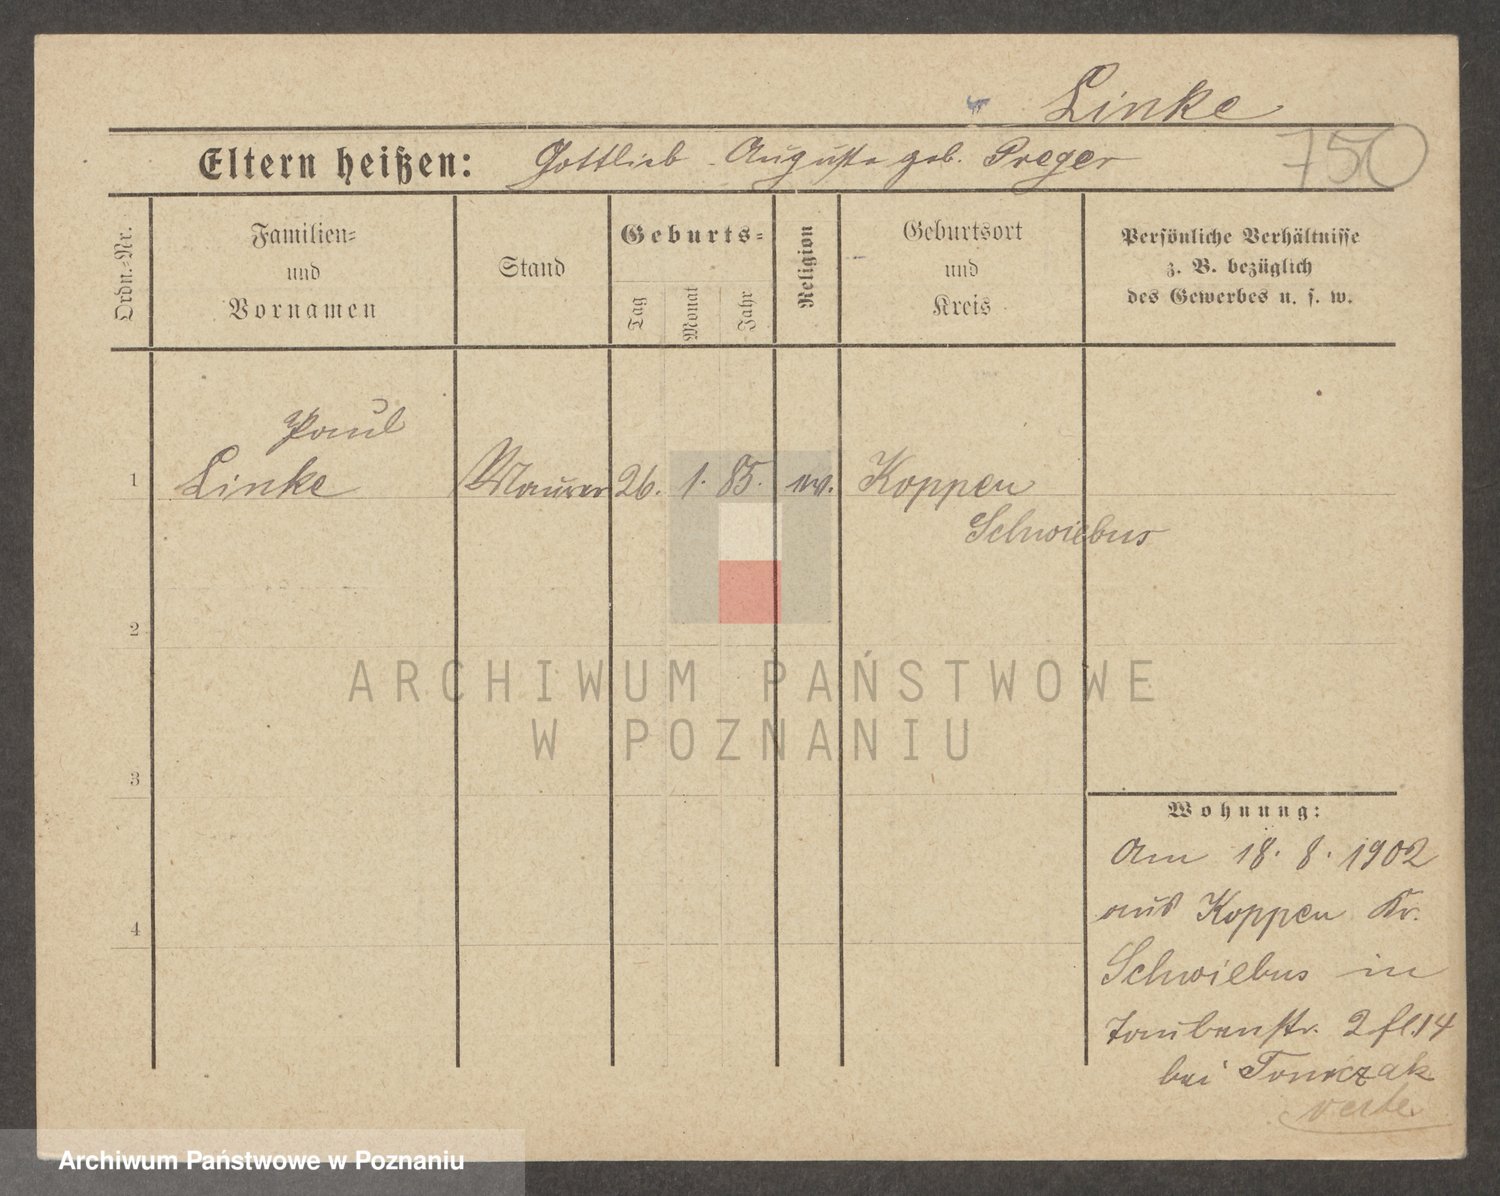 Linke
750
Eltern heißen: Gottlieb Auguste geb. Preger
Ordn.-Nr.
Familien=
und
Vornamen
Stand
Geburts=
Tag
Monat
Jahr
Religion
Geburtsort
und
Kreis
Persönliche Verhältnisse
z. B. bezüglich
des Gewerbes u. s. w.
Paul
1 Linke Maurer 26. 1. 85. ev. Koppen
Schwiebus
2
3
4
Wohnung:
Am 18. 8. 1902
aus Koppen Kr.
Schwiebus in
Taubenstr. 2 fl. 14
bei Tomczak
verte
ARCHIWUM PAŃSTWOWE
W POZNANIU
Archiwum Państwowe w Poznaniu